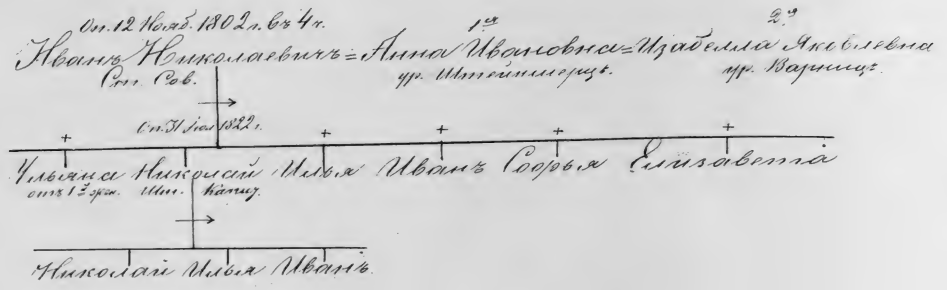 Оп. 12 Нояб. 1802 г. въ 4 ч. 1ая 2ая
Иванъ Николаевичъ = Анна Ивановна = Изабелла Яковлевна
Ст. Сов. ур. Штейнмерцъ. ур. Варницъ.
Оп. 31 1822 г.
Ульяна Николай Илья Иванъ Софья Елизавета
отъ 1й жен. Шт. Капит.
Николай Илья Иванъ